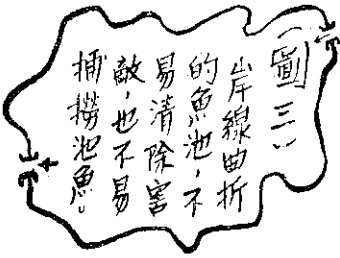 (圖三)
岸線曲折
的魚池，不
易清除害
敵，也不易
捕撈池魚。